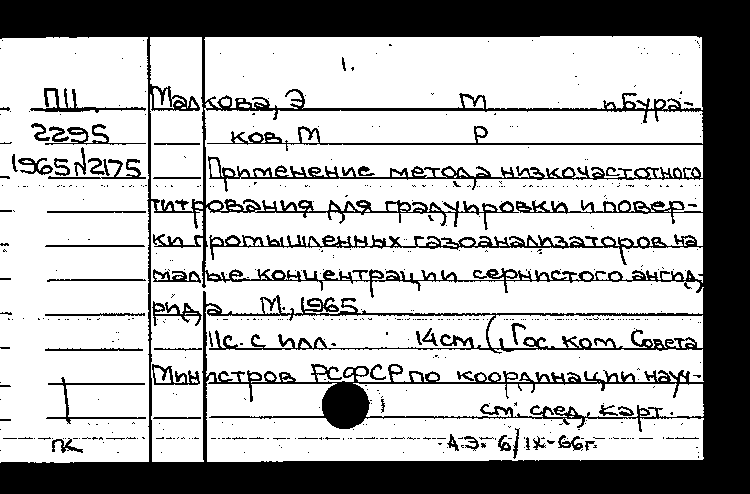 1.
П11 Малкова, Э М п Бура-
2295 ков, М Р
1965№2175 Применение метода низкочастотного
титрования для градуировки и повер-
ки промышленных газоанализаторов на
малые концентрации сернистого ангид-
рида. М., 1965.
11с. с илл. 14 см. (Гос. ком. Совета
Министров РСФСР по координации науч-
см. след. карт.
ПК А.Э. 6/IX-66г.